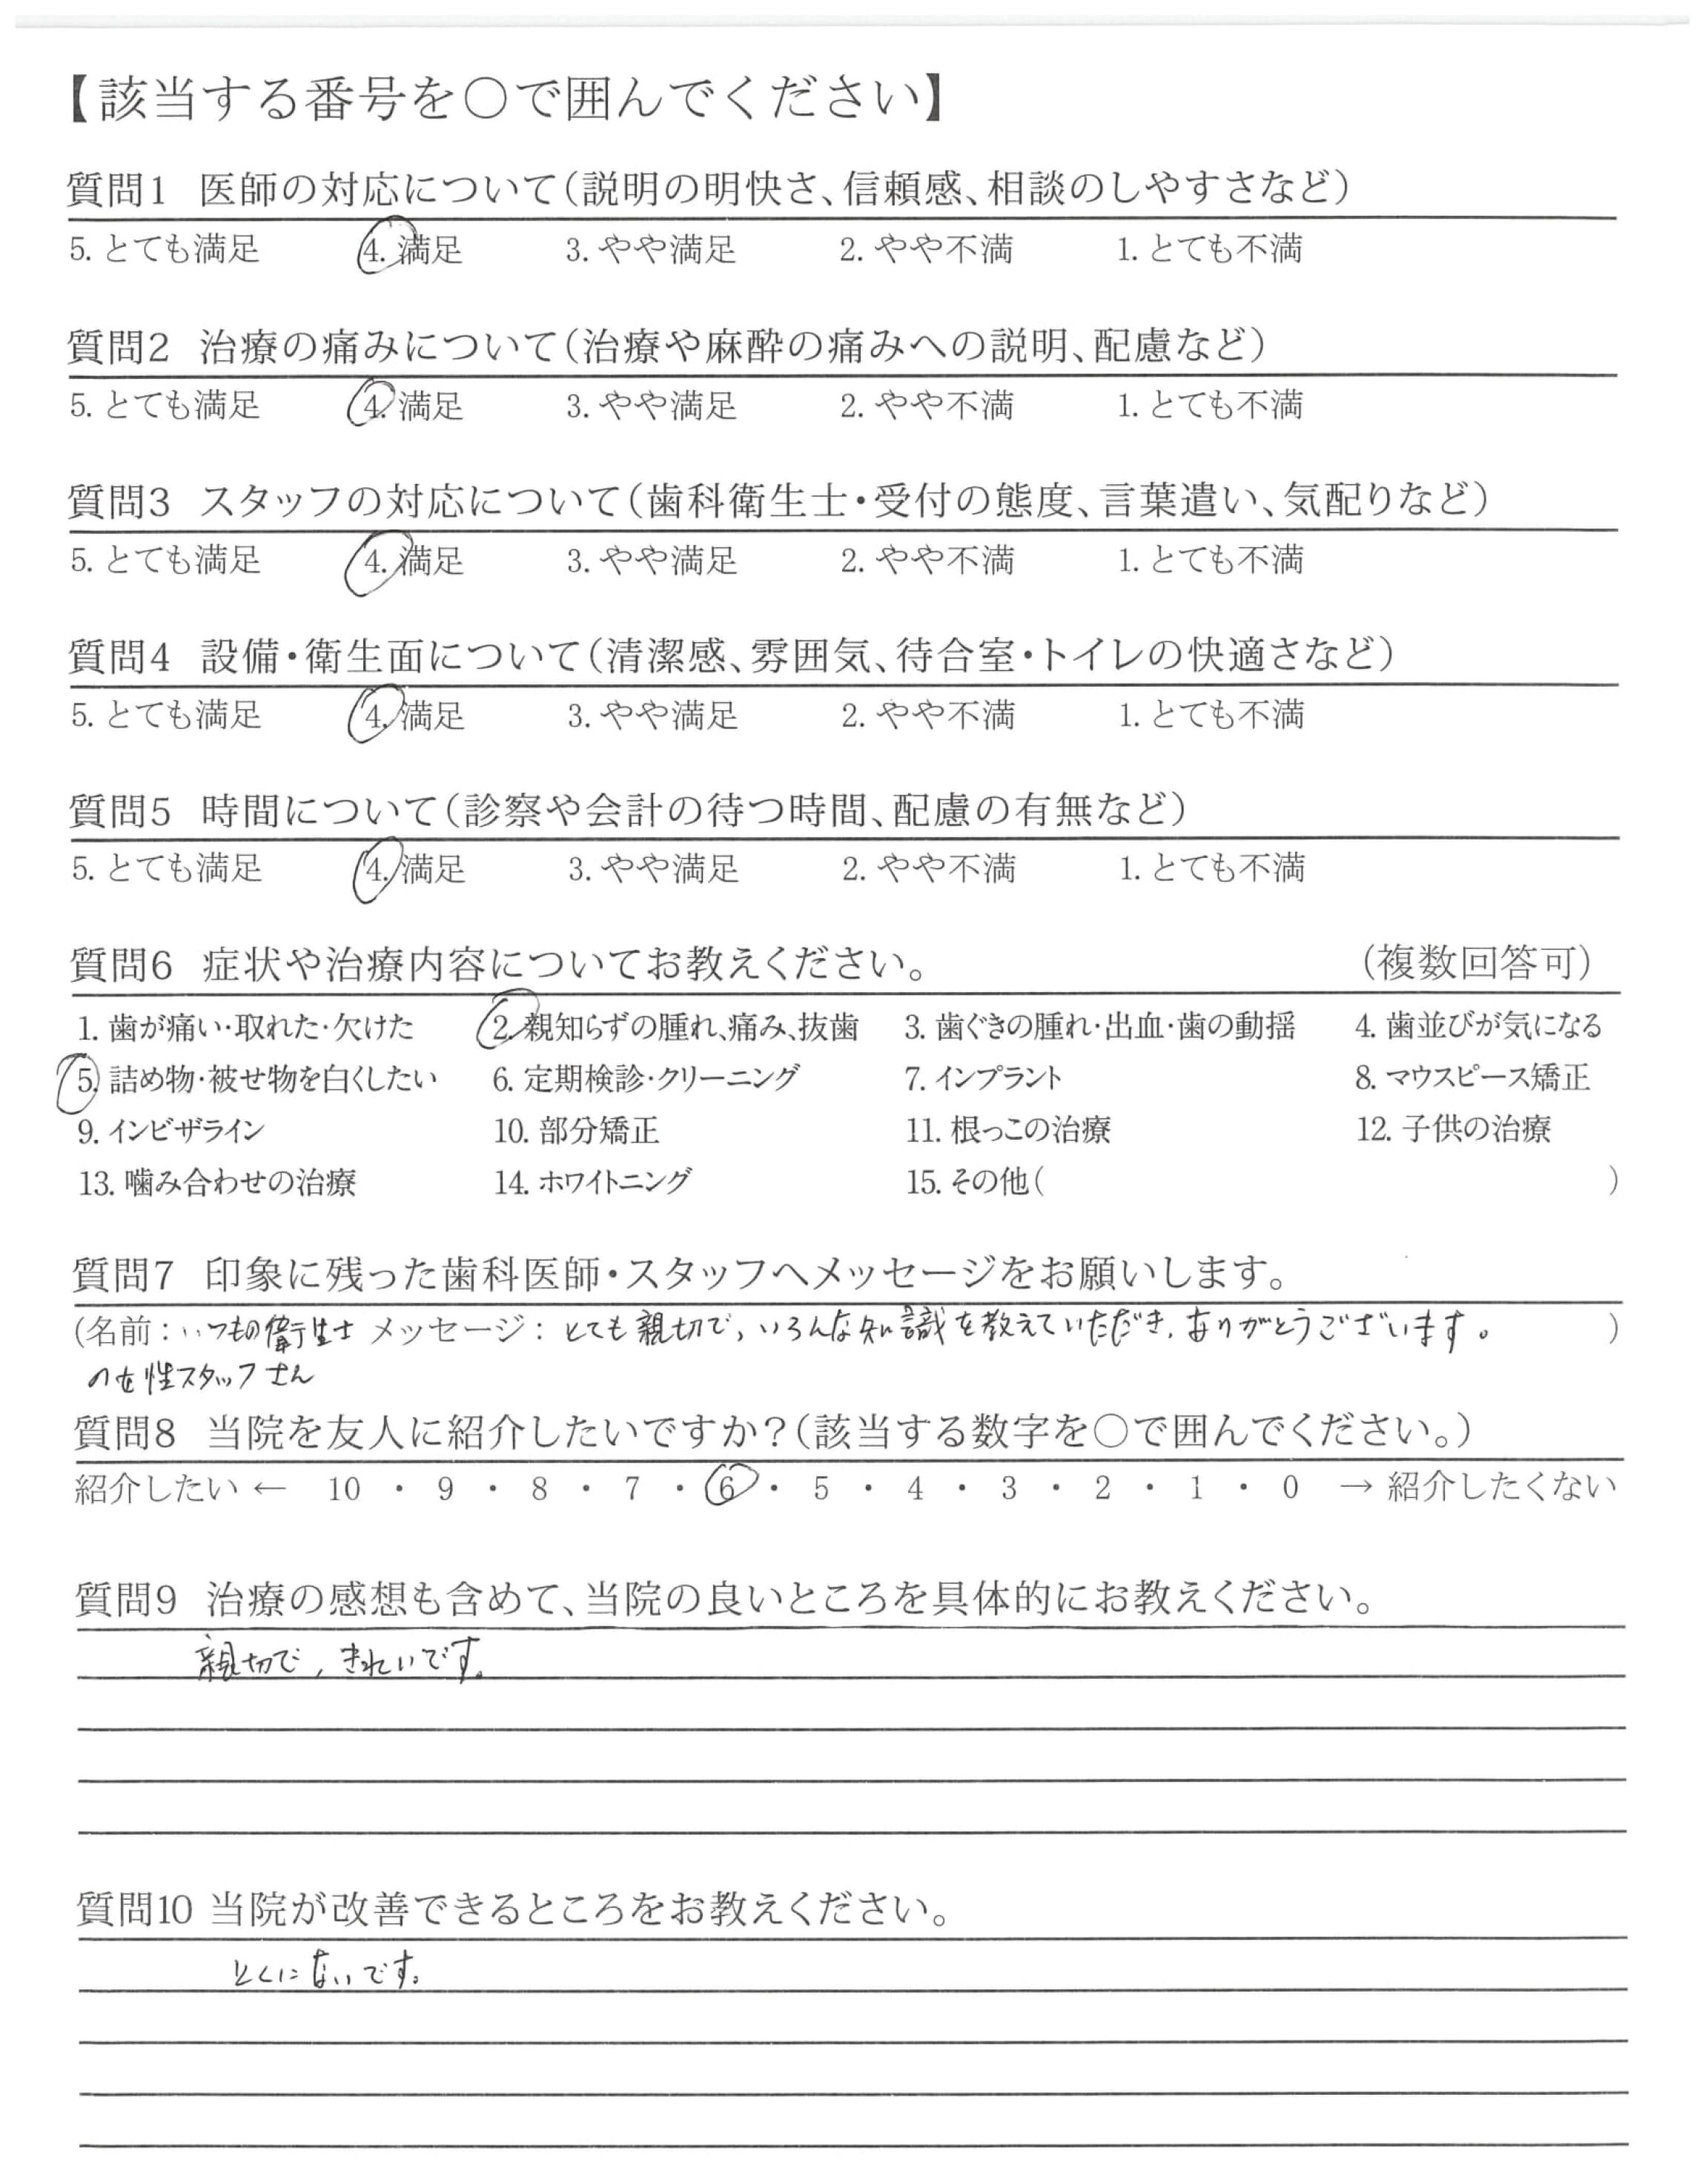 【該当する番号を○で囲んでください】
質問1 医師の対応について(説明の明快さ、信頼感、相談のしやすさなど)
5. とても満足 4. 満足 3. やや満足 2. やや不満 1. とても不満
質問2 治療の痛みについて(治療や麻酔の痛みへの説明、配慮など)
5. とても満足 4. 満足 3. やや満足 2. やや不満 1. とても不満
質問3 スタッフの対応について(歯科衛生士・受付の態度、言葉遣い、気配りなど)
5. とても満足 4. 満足 3. やや満足 2. やや不満 1. とても不満
質問4 設備・衛生面について(清潔感、雰囲気、待合室・トイレの快適さなど)
5. とても満足 4. 満足 3. やや満足 2. やや不満 1. とても不満
質問5 時間について(診察や会計の待つ時間、配慮の有無など)
5. とても満足 4. 満足 3. やや満足 2. やや不満 1. とても不満
質問6 症状や治療内容についてお教えください。 (複数回答可)
1. 歯が痛い・取れた・欠けた 2. 親知らずの腫れ、痛み、抜歯 3. 歯ぐきの腫れ・出血・歯の動揺 4. 歯並びが気になる
5. 詰め物・被せ物を白くしたい 6. 定期検診・クリーニング 7. インプラント 8. マウスピース矯正
9. インビザライン 10. 部分矯正 11. 根っこの治療 12. 子供の治療
13. 噛み合わせの治療 14. ホワイトニング 15. その他( )
質問7 印象に残った歯科医師・スタッフへメッセージをお願いします。
(名前:いつもの衛生士 メッセージ:とても親切で、いろんな知識を教えていただき、ありがとうございます。 )
の女性スタッフさん
質問8 当院を友人に紹介したいですか?(該当する数字を○で囲んでください。)
紹介したい ← 10 ・ 9 ・ 8 ・ 7 ・ 6 ・ 5 ・ 4 ・ 3 ・ 2 ・ 1 ・ 0 → 紹介したくない
質問9 治療の感想も含めて、当院の良いところを具体的にお教えください。
親切で、きれいです。
質問10 当院が改善できるところをお教えください。
とくにないです。